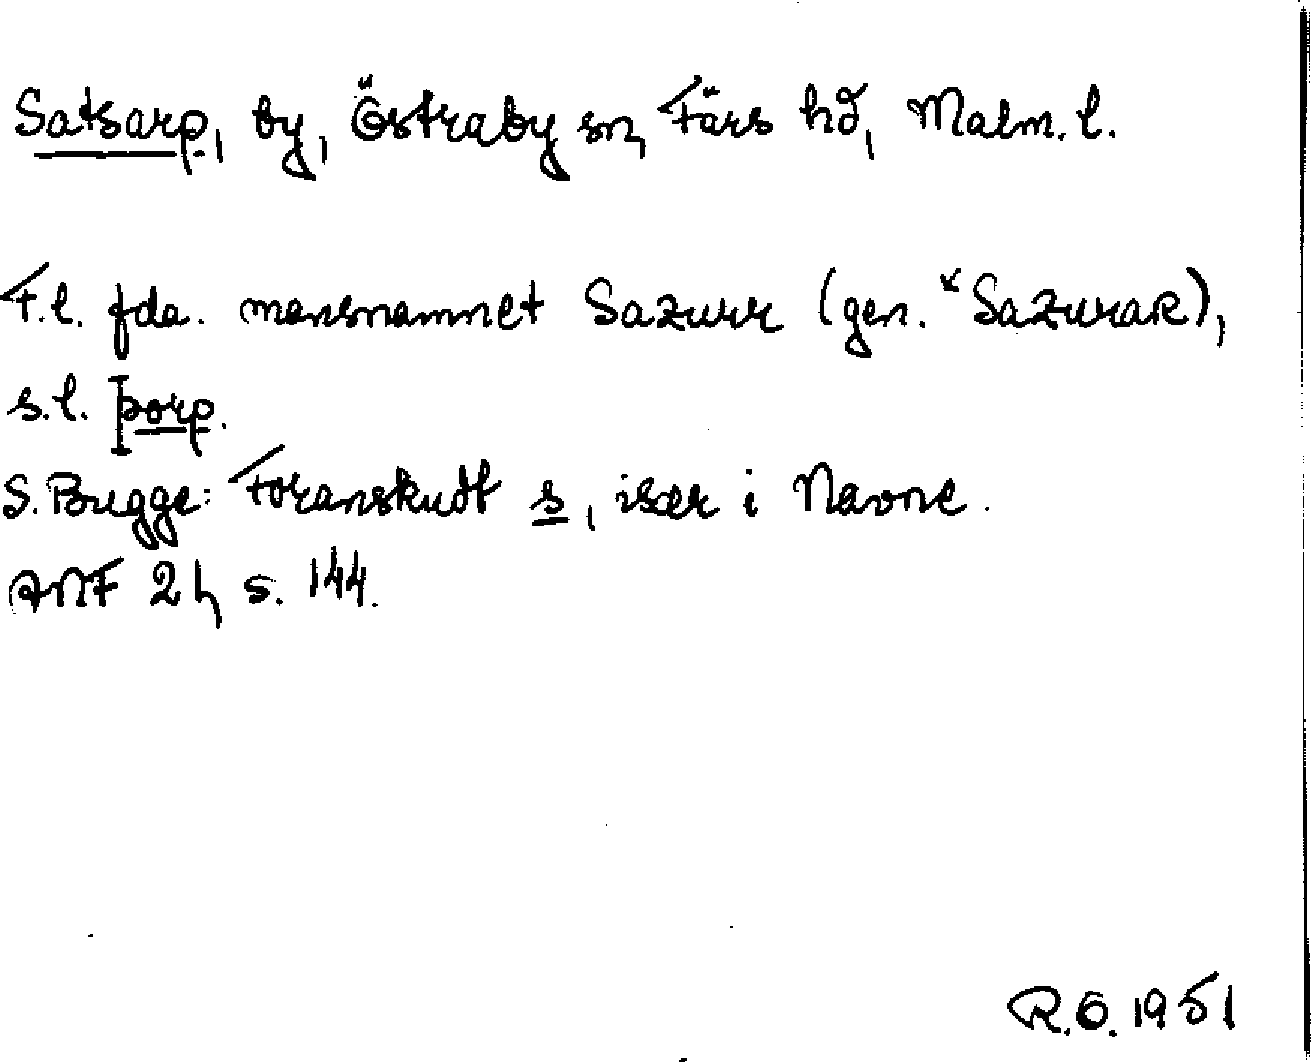 Satsarp, by, Östraby sn, Färs hd, Malm. l.
F.l. fda. mansnamnet Sazurr (gen. *Sazuraʀ),
s.l. þorp.
S. Bugge: Foranskudt s, især i Navne.
ANF 2, s. 144.
R.O. 1951